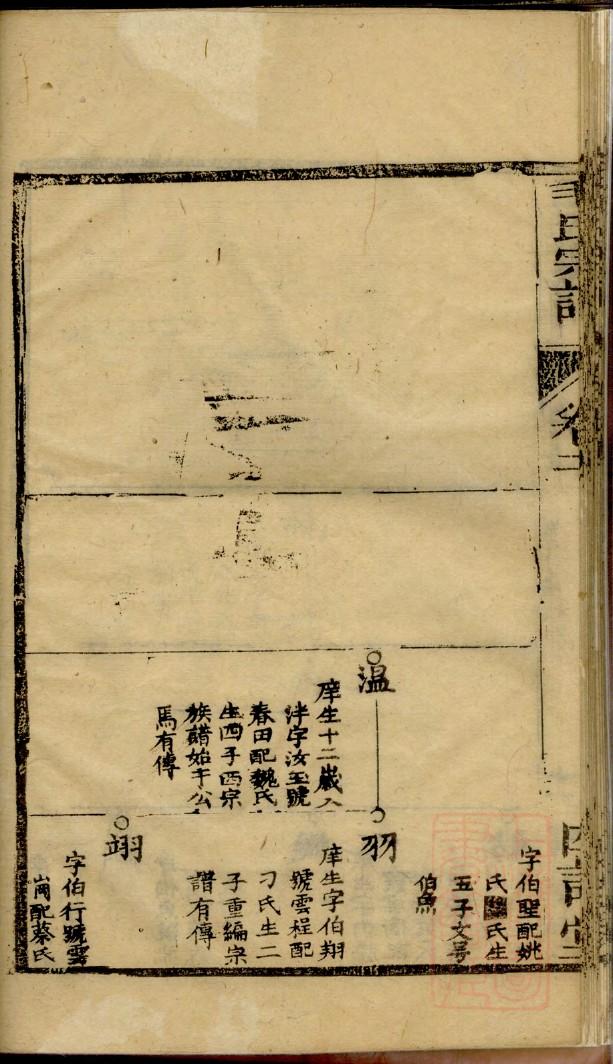 毛氏宗譜
卷二
字伯聖配姚
氏
氏生
五子文
伯魚
温
庠生十二歲入
泮字汝玉號
春田配魏氏
生四子西宗
族譜始于公
焉有傳
羽
庠生字伯翔
號雲程配
刁氏生二
子重編宗
譜有傳
翊
字伯行號雲
崗配蔡氏